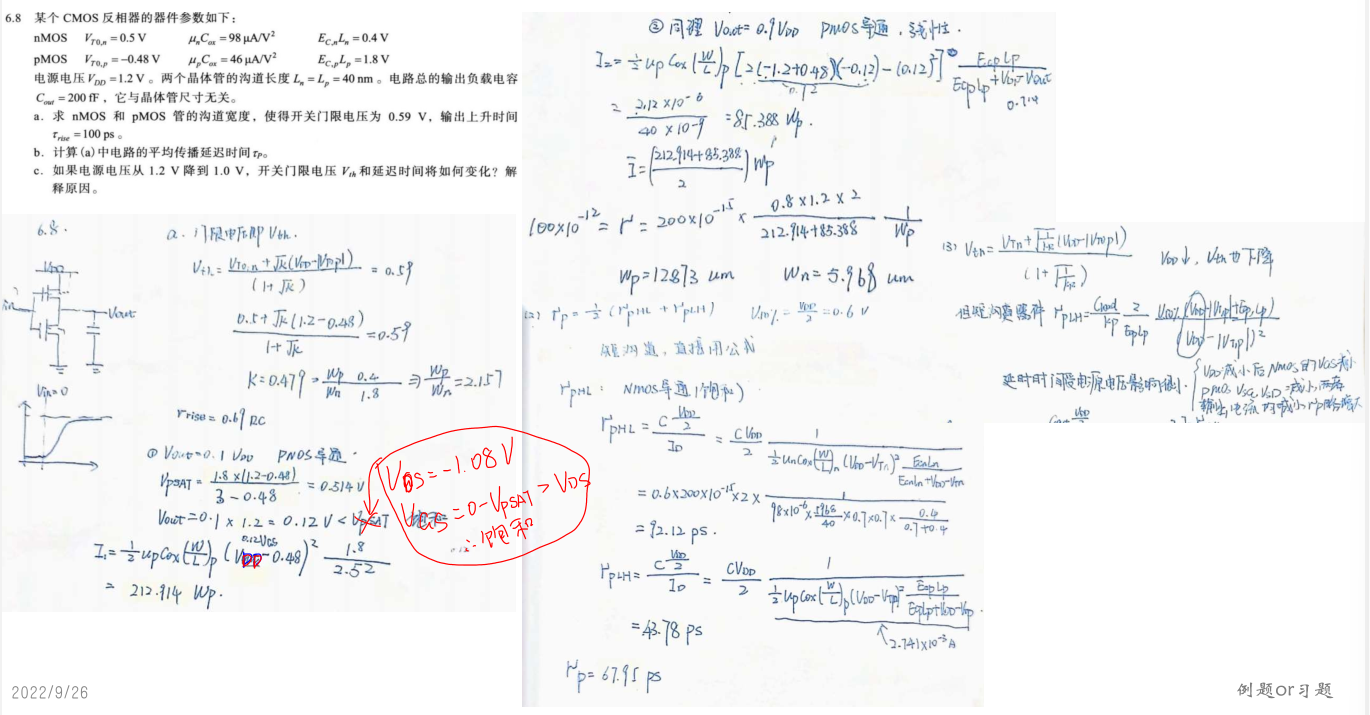 6.8 某个 CMOS 反相器的器件参数如下：
nMOS V_{T0,n} = 0.5 V μ_nC_{ox} = 98 μA/V² E_{C,n}L_n = 0.4 V
pMOS V_{T0,p} = −0.48 V μ_pC_{ox} = 46 μA/V² E_{C,p}L_p = 1.8 V
电源电压 V_{DD} = 1.2 V。两个晶体管的沟道长度 L_n = L_p = 40 nm。电路总的输出负载电容
C_{out} = 200 fF，它与晶体管尺寸无关。
a．求 nMOS 和 pMOS 管的沟道宽度，使得开关门限电压为 0.59 V，输出上升时间
τ_{rise} = 100 ps。
b．计算(a)中电路的平均传播延迟时间 τ_P。
c．如果电源电压从 1.2 V 降到 1.0 V，开关门限电压 V_{th} 和延迟时间将如何变化？解
释原因。
6.8.
VDD
Vout
Vin=0
a. 门限电压即 Vth.
Vth = (VT0,n + √k(VDD-|VT0p|)) / (1+√k) = 0.59
(0.5+√k(1.2-0.48)) / (1+√k) = 0.59
K=0.479 = Wp/Wn 0.4/1.8 ⇒ Wp/Wn = 2.157
τrise = 0.69 RC
① Vout=0.1 VDD PMOS导通.
VpSAT = 1.8×(1.2-0.48) / (3-0.48) = 0.514V
Vout=0.1×1.2=0.12V < VpSAT
I1 = 1/2 upCox(W/L)p (VDD-0.48)² 1.8/2.52
= 212.914 Wp.
VDS=-1.08V
VGS=0-VPSAT>VDS
∴饱和
② 同理 Vout=0.9VDD PMOS导通，线性.
I2 = 1/2 up Cox (W/L)p [2(-1.2+0.48)(-0.12)-(0.12)²] EcpLp / (EcpLp+VDD-Vout)
= 2.12×10⁻⁶ / 40×10⁻⁹ = 85.388 Wp.
Ī = ((212.914+85.388)/2) Wp
100×10⁻¹² = τ = 200×10⁻¹⁵ × (0.8×1.2×2)/(212.914+85.388) 1/Wp
Wp=12.873 um Wn=5.968 um
(2) τp = 1/2 (τpHL + τpLH) V50% = VDD/2 = 0.6 V
短沟道，直接用公式
τpHL: NMOS导通(饱和).
τpHL = C VDD/2 / ID = CVDD/2 1 / (1/2 unCox(W/L)n (VDD-VTn)² EcnLn/(EcnLn+VDD-VTn))
= 0.6×200×10⁻¹⁵×2× 1 / (98×10⁻⁶×5968/40×0.7×0.7×0.4/(0.7+0.4))
= 92.12 ps.
τpLH = C VDD/2 / ID = CVDD/2 1 / (1/2 upCox(W/L)p(VDD-VTp)² EcpLp/(EcpLp+VDD-VTp)).
2.741×10⁻³A
= 43.78 ps
τp = 67.95 ps
(3) Vth = (VTn+√(1/kR)(VDD-|VT0p|)) / (1+√(1/kR)) VDD↓, Vth也下降
τpLH = Cload/kp 2/EcpLp V50%(VDD-|VTp|+EcpLp) / (VDD-|VTp|)²
2022/9/26
例题or习题